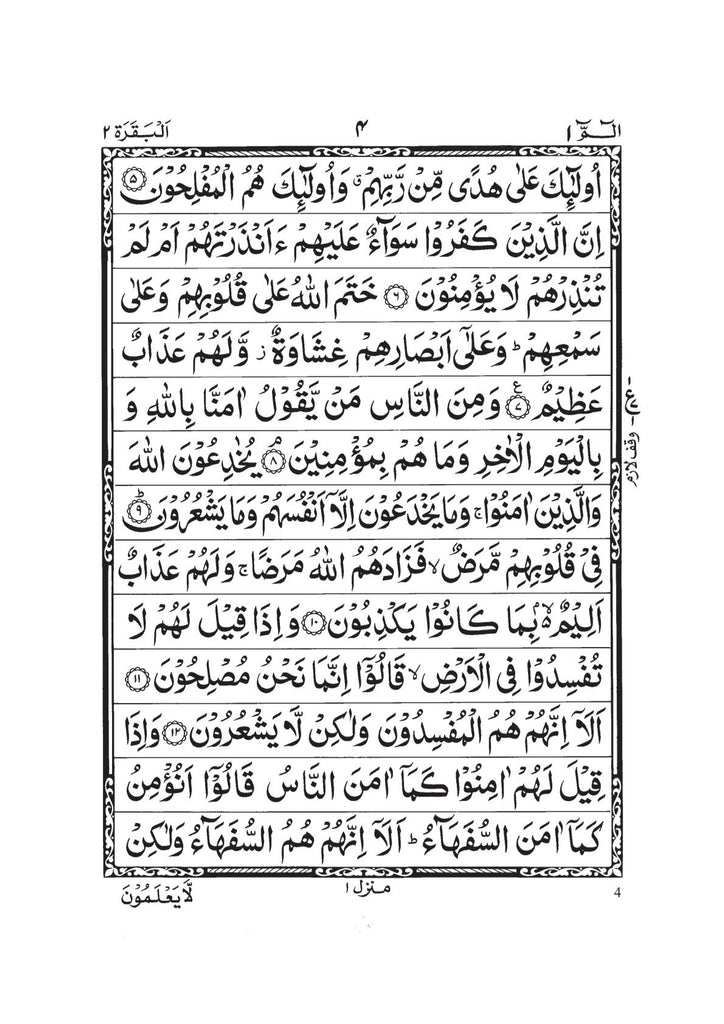 الٓمّٓ ١ ۴ اَلْبَقَرَة ٢
اُولٰٓئِكَ عَلٰى هُدًى مِّنْ رَّبِّهِمْ ۙ وَاُولٰٓئِكَ هُمُ الْمُفْلِحُوْنَ ۵
اِنَّ الَّذِيْنَ كَفَرُوْا سَوَآءٌ عَلَيْهِمْ ءَاَنْذَرْتَهُمْ اَمْ لَمْ
تُنْذِرْهُمْ لَا يُؤْمِنُوْنَ ۶ خَتَمَ اللّٰهُ عَلٰى قُلُوْبِهِمْ وَعَلٰى
سَمْعِهِمْ ؕ وَعَلٰٓى اَبْصَارِهِمْ غِشَاوَةٌ ز وَّلَهُمْ عَذَابٌ
عَظِيْمٌ ۷ ع وَمِنَ النَّاسِ مَنْ يَّقُوْلُ اٰمَنَّا بِاللّٰهِ وَ
بِالْيَوْمِ الْاٰخِرِ وَمَا هُمْ بِمُؤْمِنِيْنَ ۘ ۸ يُخٰدِعُوْنَ اللّٰهَ
وَالَّذِيْنَ اٰمَنُوْا ۚ وَمَا يَخْدَعُوْنَ اِلَّآ اَنْفُسَهُمْ وَمَا يَشْعُرُوْنَ ؕ ۹
فِيْ قُلُوْبِهِمْ مَّرَضٌ ۙ فَزَادَهُمُ اللّٰهُ مَرَضًا ۚ وَلَهُمْ عَذَابٌ
اَلِيْمٌۢ ۙ بِمَا كَانُوْا يَكْذِبُوْنَ ۱۰ وَاِذَا قِيْلَ لَهُمْ لَا
تُفْسِدُوْا فِى الْاَرْضِ ۙ قَالُوْٓا اِنَّمَا نَحْنُ مُصْلِحُوْنَ ۱۱
اَلَآ اِنَّهُمْ هُمُ الْمُفْسِدُوْنَ وَلٰكِنْ لَّا يَشْعُرُوْنَ ۱۲ وَاِذَا
قِيْلَ لَهُمْ اٰمِنُوْا كَمَآ اٰمَنَ النَّاسُ قَالُوْٓا اَنُؤْمِنُ
كَمَآ اٰمَنَ السُّفَهَآءُ ؕ اَلَآ اِنَّهُمْ هُمُ السُّفَهَآءُ وَلٰكِنْ
وقف لازم
4 منزل ١ لَّا يَعْلَمُوْنَ